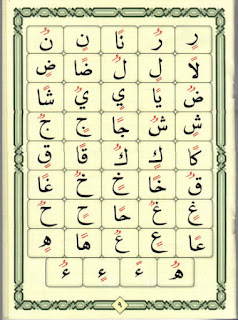 رٍ رٌ نًا نٍ نٌ
لًا لٍ لٌ ضًا ضٍ
ضٌ يًا يٍ يٌ شًا
شٍ شٌ جًا جٍ جٌ
كًا كٍ كٌ قًا قٍ
قٌ خًا خٍ خٌ غًا
غٍ غٌ حًا حٍ حٌ
عًا عٍ عٌ هًا هٍ
هٌ ءً ءٍ ءٌ
٩